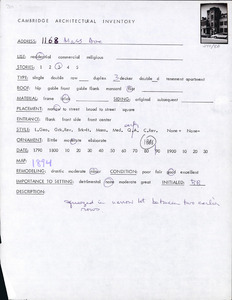 CAMBRIDGE ARCHITECTURAL INVENTORY
ADDRESS: 1168 Mass Ave
USE: residential commercial religious
STORIES: 1 2 3 4 5
TYPE: single double row duplex decker double tenement apartment
ROOF: hip gable front gable flank mansard flat
MATERIAL: frame SIDING: original subsequent
PLACEMENT: to street broad to square
ENTRANCE: flank front side front center
STYLE:
ORNAMENT: little elaborate
DATE: 1790 1800 10 20 30 40 50 60 70 80 90 1900 10 20 30
MAP:
1894
REMODELING: drastic moderate minor CONDITION: poor fair good excellent
IMPORTANCE TO SETTING: detrimental moderate great INITIALED:
DESCRIPTION:
squeezed in narrow lot between two earlier
rows